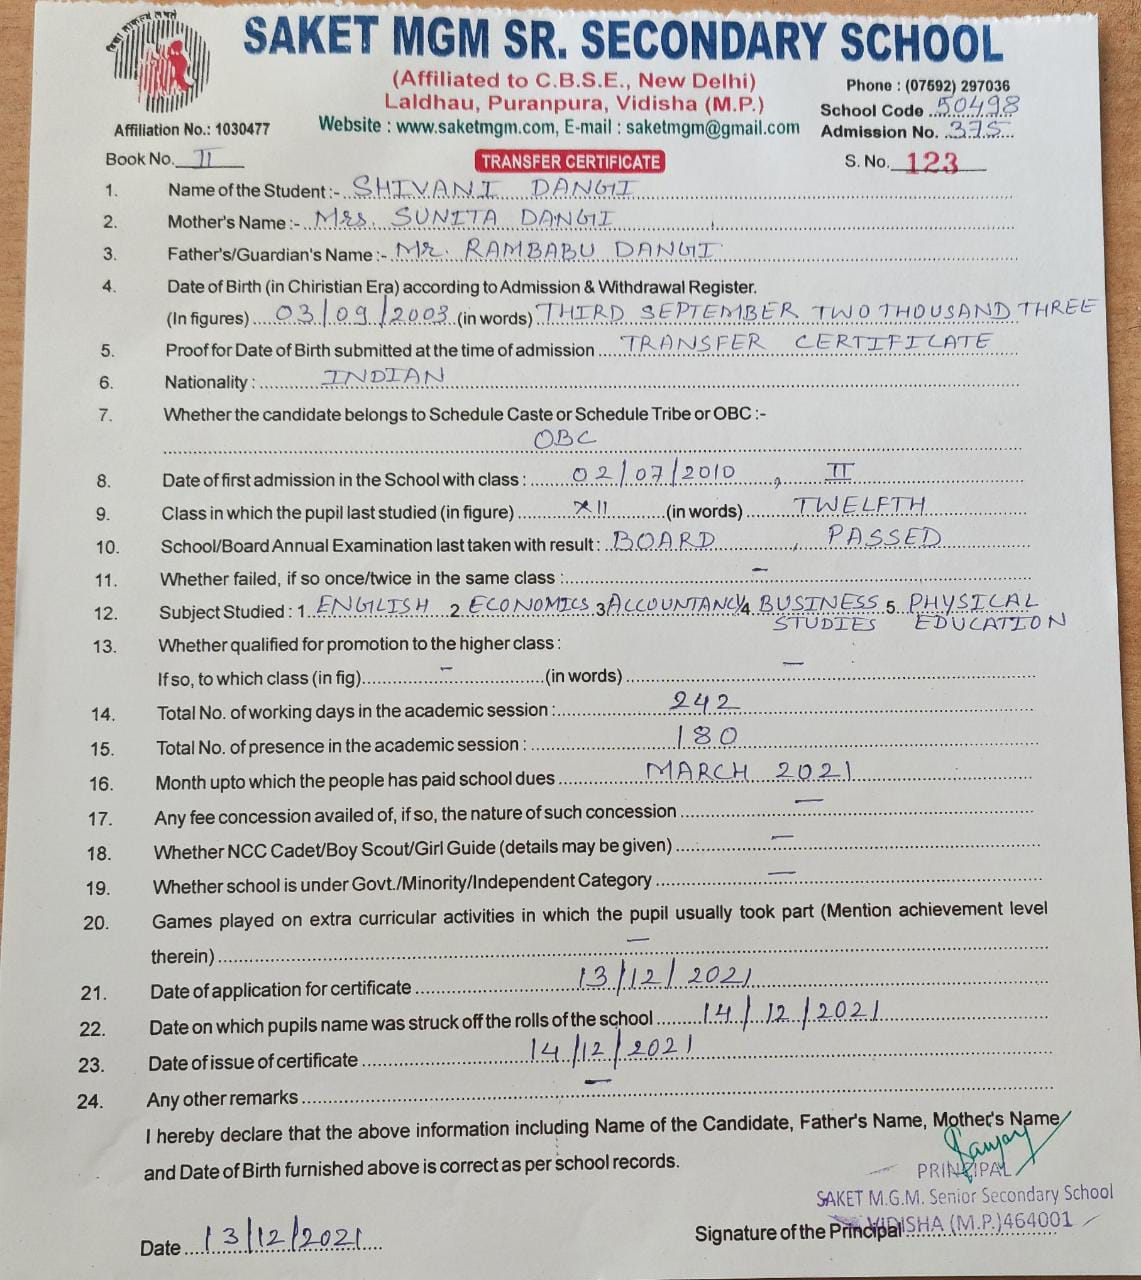 SAKET MGM SR. SECONDARY SCHOOL
(Affiliated to C.B.S.E., New Delhi)
Phone : (07592) 297036
Laldhau, Puranpura, Vidisha (M.P.)
School Code 50498
Affiliation No.: 1030477
Website : www.saketmgm.com, E-mail : saketmgm@gmail.com
Admission No. 375
Book No. II
TRANSFER CERTIFICATE
S. No. 123
1. Name of the Student :- SHIVANI DANGI
2. Mother's Name :- Mrs. SUNITA DANGI
3. Father's/Guardian's Name :- Mr. RAMBABU DANGI
4. Date of Birth (in Chiristian Era) according to Admission & Withdrawal Register.
(In figures) 03/09/2003 (in words) THIRD SEPTEMBER TWO THOUSAND THREE
5. Proof for Date of Birth submitted at the time of admission TRANSFER CERTIFICATE
6. Nationality : INDIAN
7. Whether the candidate belongs to Schedule Caste or Schedule Tribe or OBC :-
OBC
8. Date of first admission in the School with class : 02/07/2010, II
9. Class in which the pupil last studied (in figure) XII (in words) TWELFTH
10. School/Board Annual Examination last taken with result : BOARD, PASSED
11. Whether failed, if so once/twice in the same class : –
12. Subject Studied : 1 ENGLISH 2 ECONOMICS 3 ACCOUNTANCY 4 BUSINESS 5 PHYSICAL
STUDIES EDUCATION
13. Whether qualified for promotion to the higher class :
If so, to which class (in fig) – (in words) –
14. Total No. of working days in the academic session : 242
15. Total No. of presence in the academic session : 180
16. Month upto which the people has paid school dues MARCH 2021
17. Any fee concession availed of, if so, the nature of such concession –
18. Whether NCC Cadet/Boy Scout/Girl Guide (details may be given) –
19. Whether school is under Govt./Minority/Independent Category –
20. Games played on extra curricular activities in which the pupil usually took part (Mention achievement level
therein) –
21. Date of application for certificate 13/12/2021
22. Date on which pupils name was struck off the rolls of the school 14/12/2021
23. Date of issue of certificate 14/12/2021
24. Any other remarks –
I hereby declare that the above information including Name of the Candidate, Father's Name, Mother's Name
and Date of Birth furnished above is correct as per school records.
Sanjay
PRINCIPAL
SAKET M.G.M. Senior Secondary School
VIDISHA (M.P.) 464001
Date 13/12/2021
Signature of the Principal